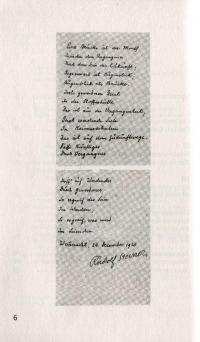 Eine Brücke ist der Mensch
Zwischen dem Vergangnen
Und dem Sein der Zukunft;
Gegenwart ist Augenblick,
Augenblick als Brücke.
Seele gewordner Geist
In der Stoffeshülle
Das ist aus der Vergangenheit,
Geist werdende Seele
In Keimesschalen
Das ist auf dem Zukunftswege.
Fasse Künftiges
Durch Vergangnes
Hoff auf Werdendes
Durch Gewordenes.
So ergreif das Sein
Im Werden;
So ergreif, was wird
Im Seienden.
Weihnacht, 24. Dezember 1920
Rudolf Steiner
6